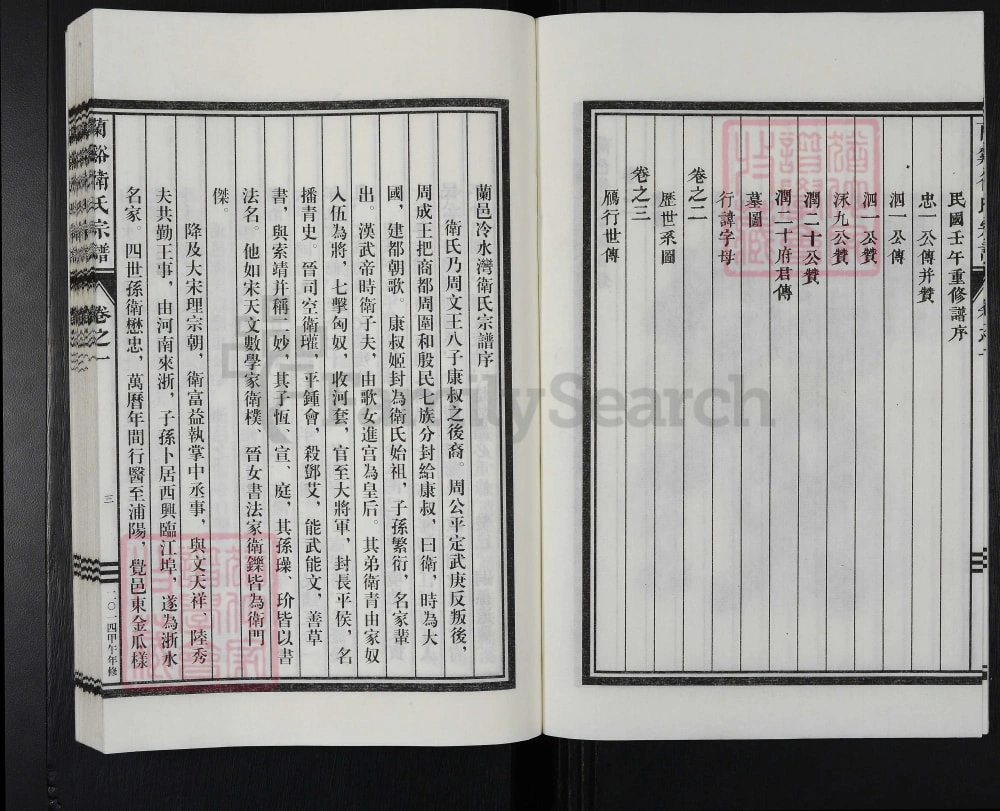 民國壬午重修譜序
忠一公傳并贊
泗一公傳
泗一公贊
泳九公贊
潤二十公贊
潤二十府君傳
墓圖
行諱字母
卷之二
歷世系圖
卷之三
雁行世傳
蘭邑冷水灣衛氏宗譜序
衛氏乃周文王八子康叔之後裔。周公平定武庚反叛後，
周成王把商都周圍和殷民七族分封給康叔，曰衛，時為大
國，建都朝歌。康叔姬封為衛氏始祖，子孫繁衍，名家輩
出。漢武帝時衛子夫，由歌女進宮為皇后。其弟衛青由家奴
入伍為將，七擊匈奴，收河套，官至大將軍，封長平侯，名
播青史。晉司空衛瓘，平鍾會，殺鄧艾，能武能文，善草
書，與索靖并稱二妙，其子恆、宣、庭，其孫璪、玠皆以書
法名。他如宋天文數學家衛樸、晉女書法家衛鑠皆為衛門
傑。
降及大宋理宗朝，衛富益執掌中丞事，與文天祥、陸秀
夫共勤王事，由河南來浙，子孫卜居西興臨江埠，遂為浙水
名家。四世孫衛懋忠，萬曆年間行醫至浦陽，覺邑東金瓜樣
蘭谿衛氏宗譜
卷之一
三
二〇一四甲午年修
FamilySearch